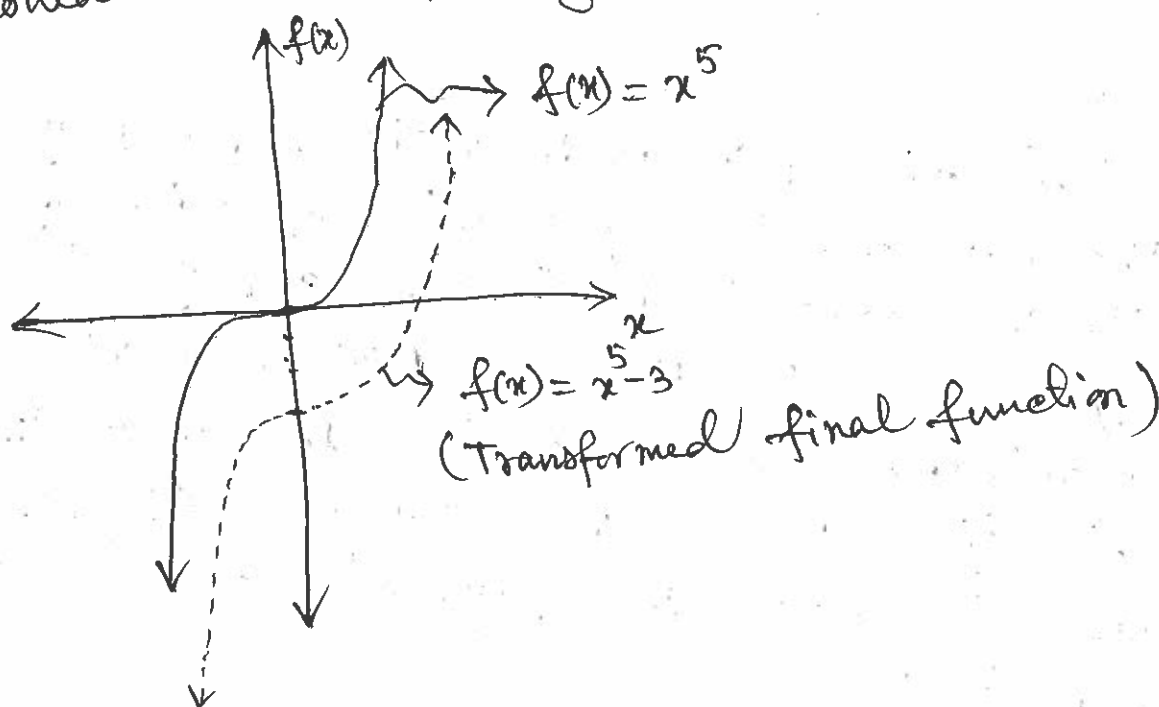 f(x)
f(x) = x^5
x
f(x) = x^5-3
(Transformed final function)